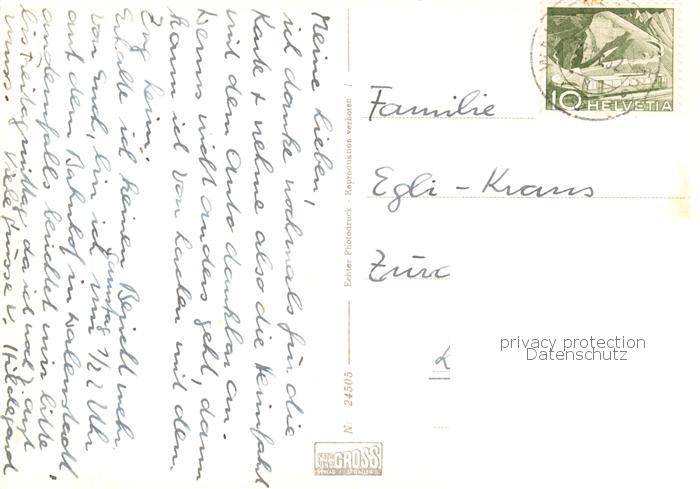 Meine Lieben,
ich danke nochmals für die
Karte + nehme also die Heimfahrt
mit dem Auto dankbar an.
Wenns nicht anders geht, dann
kann ich von Lachen mit dem
Zug heim.
Erhalte ich keinen Bericht mehr
von Euch, bin ich um 1/2 2 Uhr
Samstag
auf dem Bahnhof in Walenstadt,
andernfalls berichtet mir bitte
bis Freitagmittag, da ich zum Arzt
muss. Viele Grüsse v. Hildegard
Echter Photodruck - Reproduktion verboten /
No 24505
GROSS
10 HELVETIA
Familie
Egli-Kraus
Züric
privacy protection
Datenschutz